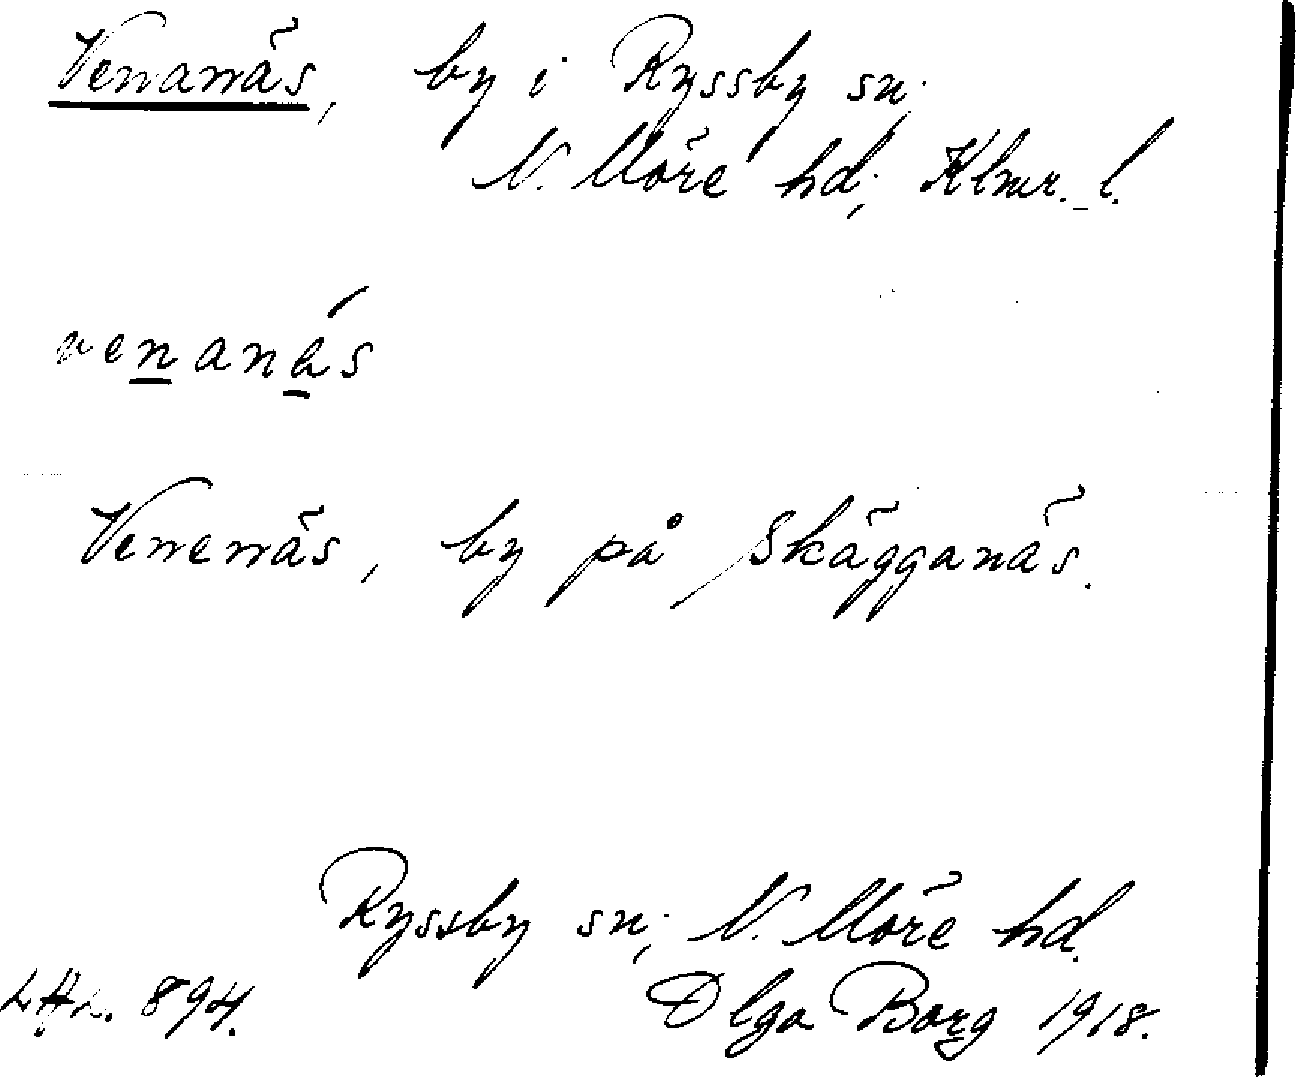 Venanäs, by i Ryssby sn;
N. Möre hd; Klmr. l.
venanäs
Venenäs, by på Skägganäs.
Ryssby sn; N. Möre hd.
894. Olga Borg 1918.